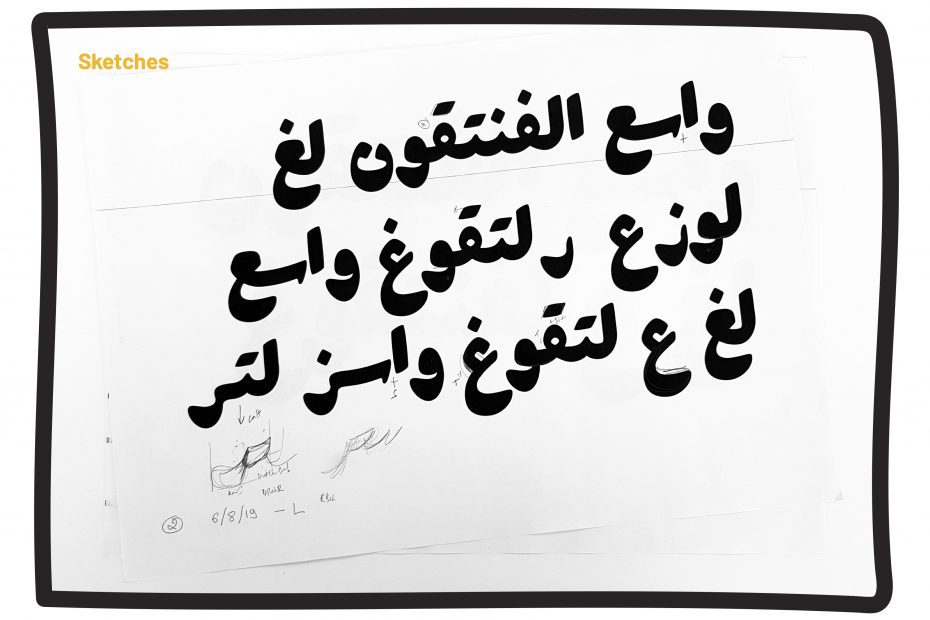 Sketches
واسع الفنتقون لغ
لوزع ر لتقوغ واسع
لغ ع لتقوغ واسز لتر
2 6/8/19 - L